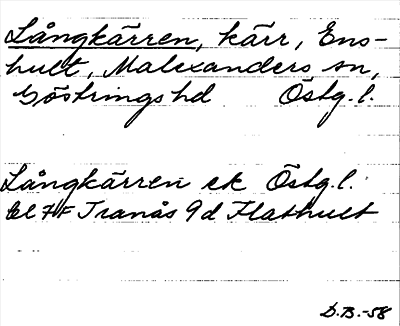 Långkärren, kärr, Ens-
hult, Malexanders sn,
Göstrings hd Östg. l.
Långkärren ek Östg. l.
bl 7F Tranås 9d Flathult
D.B.-58